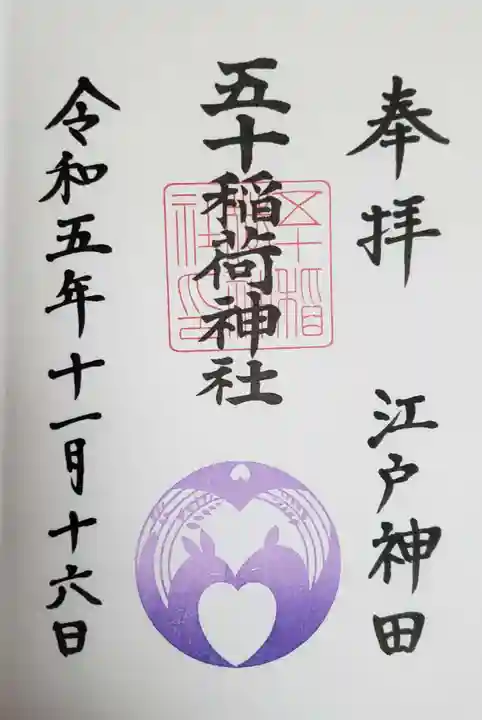 奉拝 江戸神田
五十稲荷神社
令和五年十一月十六日